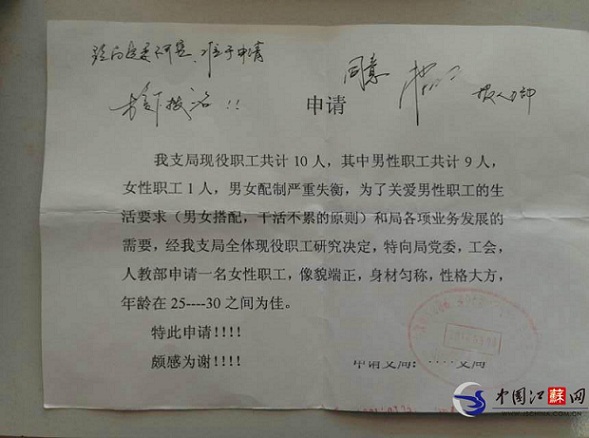 同意
申请
我支局现役职工共计 10 人，其中男性职工共计 9 人，
女性职工 1 人，男女配制严重失衡，为了关爱男性职工的生
活要求（男女搭配，干活不累的原则）和局各项业务发展的
需要，经我支局全体现役职工研究决定，特向局党委，工会，
人教部申请一名女性职工，像貌端正，身材匀称，性格大方，
年龄在 25----30 之间为佳。
特此申请!!!!
颇感为谢!!!!
申请支局：····支局
中国江苏网